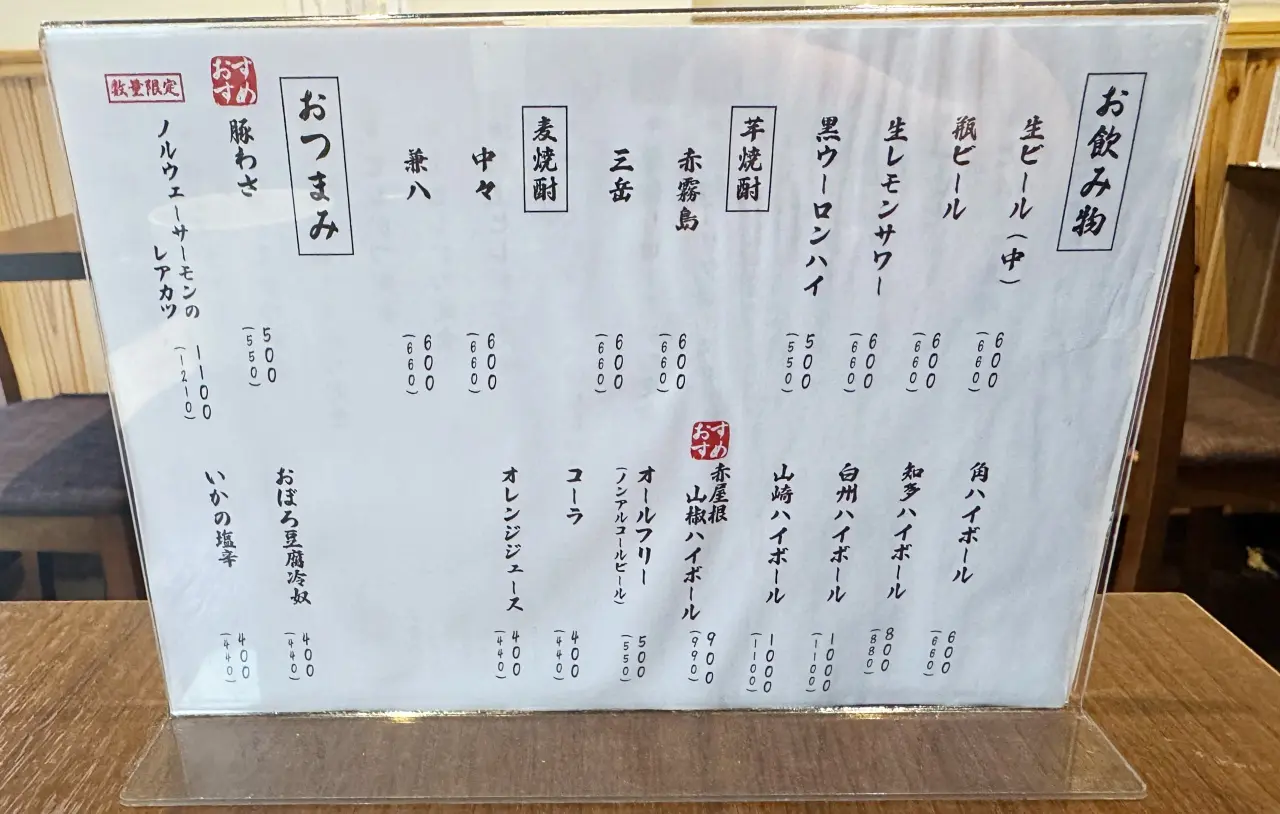 お飲み物
生ビール(中)
600
(660)
瓶ビール
600
(660)
生レモンサワー
600
(660)
黒ウーロンハイ
500
(550)
芋焼酎
赤霧島
600
(660)
三岳
600
(660)
麦焼酎
中々
600
(660)
兼八
600
(660)
角ハイボール
600
(660)
知多ハイボール
800
(880)
白州ハイボール
1000
(1100)
山崎ハイボール
1000
(1100)
おすすめ
赤屋根
山椒ハイボール
900
(990)
オールフリー
(ノンアルコールビール)
500
(550)
コーラ
400
(440)
オレンジジュース
400
(440)
おつまみ
おすすめ
豚わさ
500
(550)
数量限定
ノルウェーサーモンの
レアカツ
1100
(1210)
おぼろ豆腐冷奴
400
(440)
いかの塩辛
400
(440)